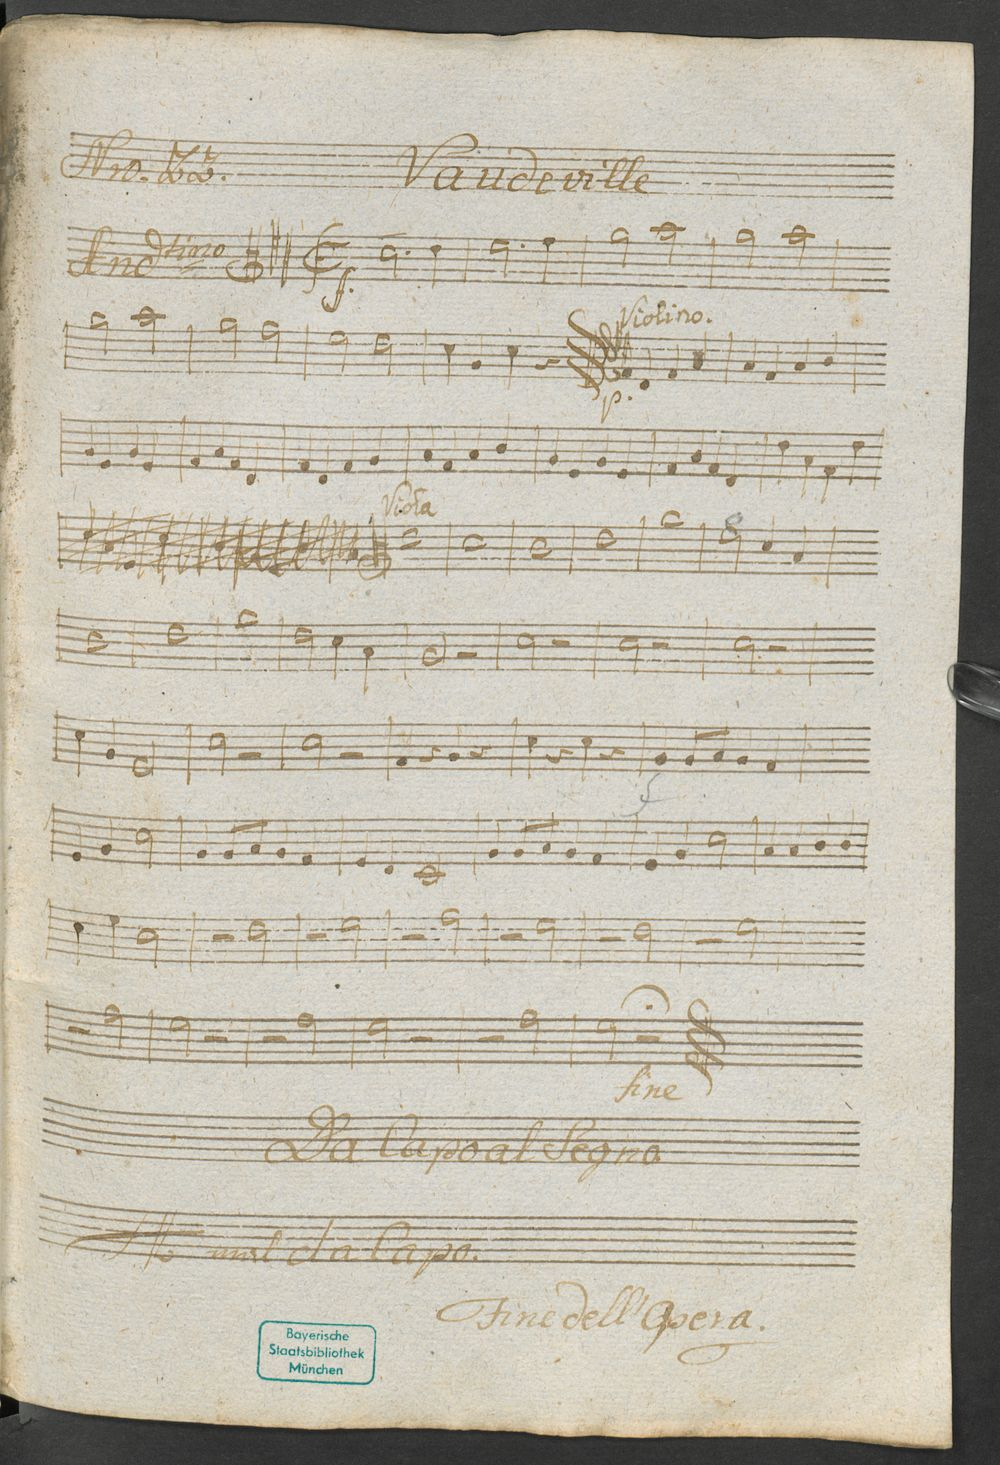 Nro. 22. Vaudeville
And.tino
f.
Violino.
p.
Viola
f
fine
Da Capo al Segno
4 mal da Capo.
Fine dell' Opera.
Bayerische
Staatsbibliothek
München